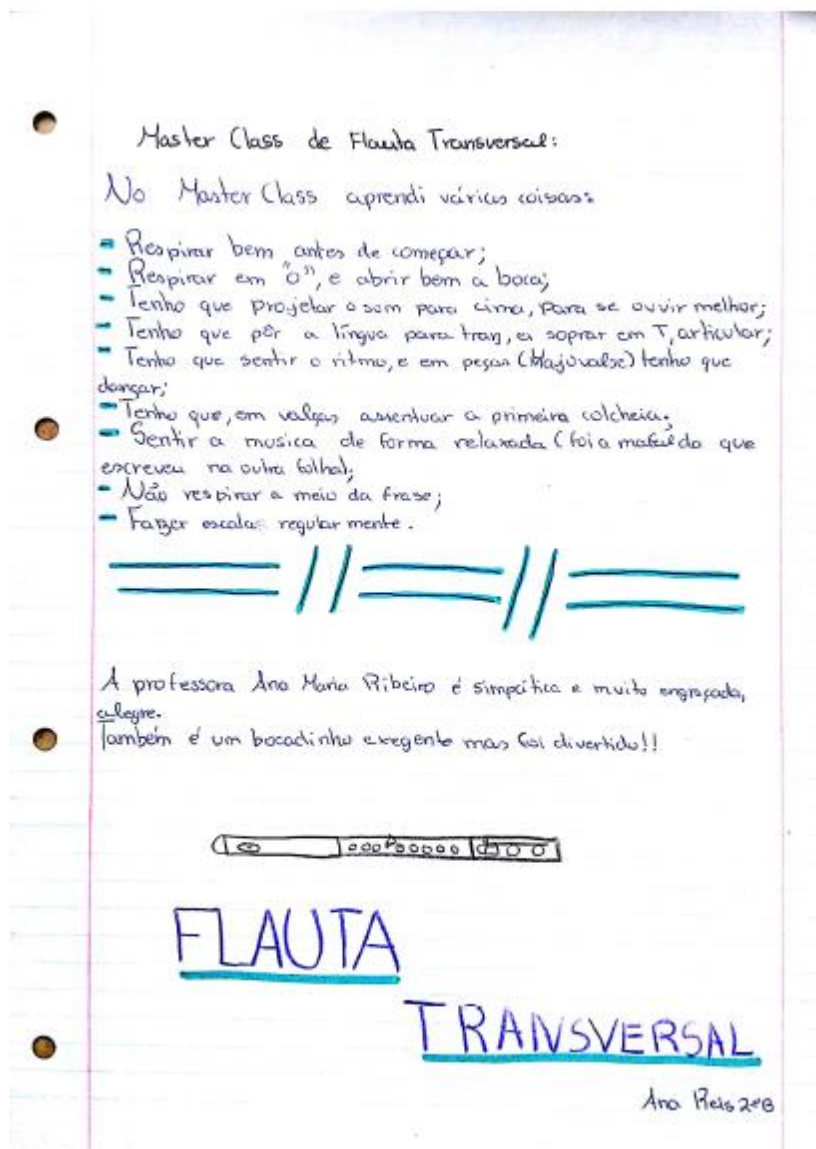 Master Class de Flauta Transversal:
No Master Class aprendi várias coisas:
- Respirar bem antes de começar;
- Respirar em "o", e abrir bem a boca;
- Tenho que projetar o som para cima, para se ouvir melhor;
- Tenho que pôr a língua para tras, e soprar em T, articular;
- Tenho que sentir o ritmo, e em peças (Majovalse) tenho que
dançar;
- Tenho que, em valsas assentuar a primeira colcheia;
- Sentir a musica de forma relaxada (foi a matilda que
escreveu na outra folha);
- Não respirar a meio da frase;
- Fazer escalas regularmente.
A professora Ana Maria Ribeiro é simpática e muito engraçada,
alegre.
Também é um bocadinho exegente mas foi divertido!!
FLAUTA
TRANSVERSAL
Ana Reis 2ºB